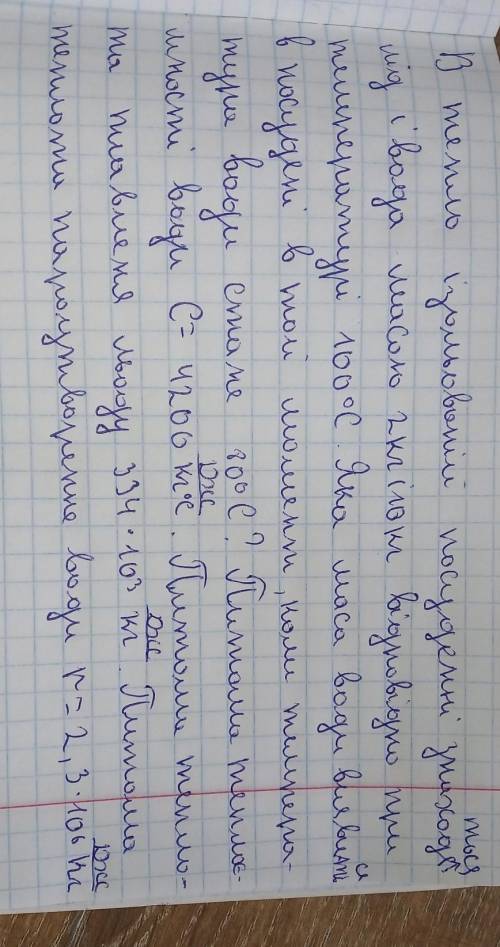 В тепло ізольованій посуденні знаходяться
лід і вода масою 2кг і 10кг відповідно при
температурі 100°С. Яка маса води виявиться
в посудені в той момент, коли темпера-
тура води стане 80°С? Питома теплоє-
мності води С= 4200 Дж/кг°С. Питома тепло-
та плавленя льоду 334·10³ Дж/кг. Питома
теплота пароутворення води r=2,3·10⁶ Дж/кг